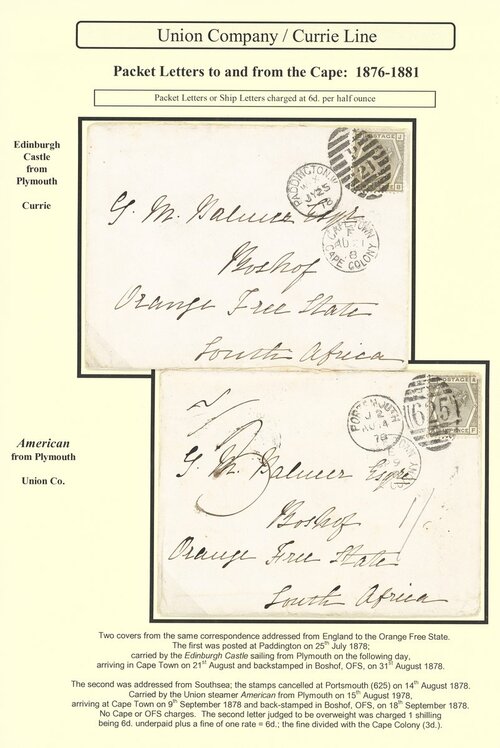 Union Company / Currie Line
Packet Letters to and from the Cape: 1876-1881
Packet Letters or Ship Letters charged at 6d. per half ounce
Edinburgh
Castle
from
Plymouth
Currie
PADDINGTON
JY 25
78
CAPE TOWN
AU 21
8
CAPE COLONY
POSTAGE
G. M. Palmer Esqr
Boshof
Orange Free State
South Africa
American
from Plymouth
Union Co.
PORTSMOUTH
J 2
AU 14
78
625
POSTAGE
3
1/
G. M. Palmer Esqre
Boshof
Orange Free State
South Africa
Two covers from the same correspondence addressed from England to the Orange Free State.
The first was posted at Paddington on 25th July 1878;
carried by the Edinburgh Castle sailing from Plymouth on the following day,
arriving in Cape Town on 21st August and backstamped in Boshof, OFS, on 31st August 1878.
The second was addressed from Southsea; the stamps cancelled at Portsmouth (625) on 14th August 1878.
Carried by the Union steamer American from Plymouth on 15th August 1978,
arriving at Cape Town on 9th September 1878 and back-stamped in Boshof, OFS, on 18th September 1878.
No Cape or OFS charges. The second letter judged to be overweight was charged 1 shilling
being 6d. underpaid plus a fine of one rate = 6d.; the fine divided with the Cape Colony (3d.).